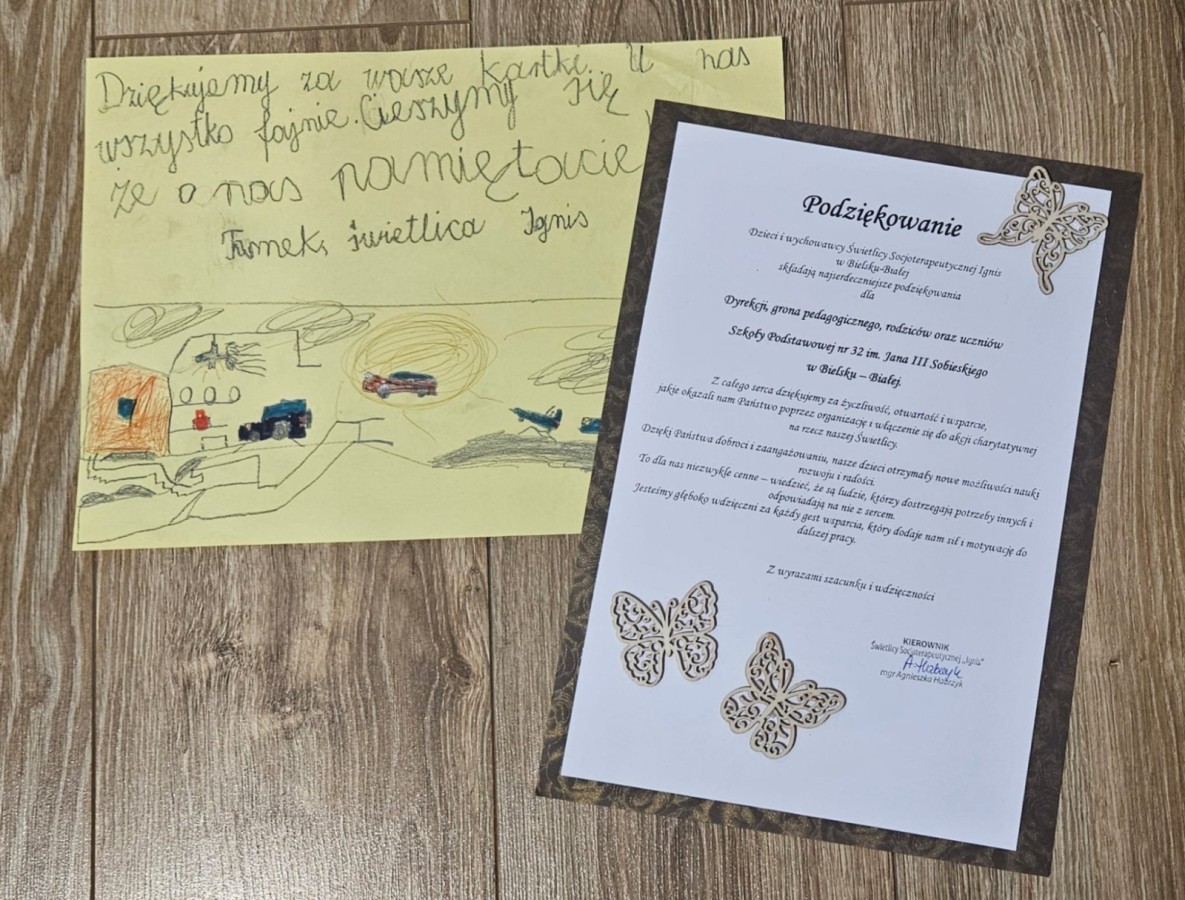 Dziękujemy za wasze kartki. U nas
wszystko fajnie. Cieszymy się
że o nas pamiętacie
świetlica Ignis
Podziękowanie
Dzieci i wychowawcy Świetlicy Socjoterapeutycznej Ignis
w Bielsku-Białej
składają najserdeczniejsze podziękowania
dla
Dyrekcji, grona pedagogicznego, rodziców oraz uczniów
Szkoły Podstawowej nr 32 im. Jana III Sobieskiego
w Bielsku – Białej.
Z całego serca dziękujemy za życzliwość, otwartość i wsparcie,
jakie okazali nam Państwo poprzez organizację i włączenie się do akcji charytatywnej
na rzecz naszej Świetlicy.
Dzięki Państwa dobroci i zaangażowaniu, nasze dzieci otrzymały nowe możliwości nauki
rozwoju i radości.
To dla nas niezwykle cenne – wiedzieć, że są ludzie, którzy dostrzegają potrzeby innych i
odpowiadają na nie z sercem.
Jesteśmy głęboko wdzięczni za każdy gest wsparcia, który dodaje nam sił i motywację do
dalszej pracy.
Z wyrazami szacunku i wdzięczności
KIEROWNIK
Świetlicy Socjoterapeutycznej „Ignis"
mgr Agnieszka Habrzyk